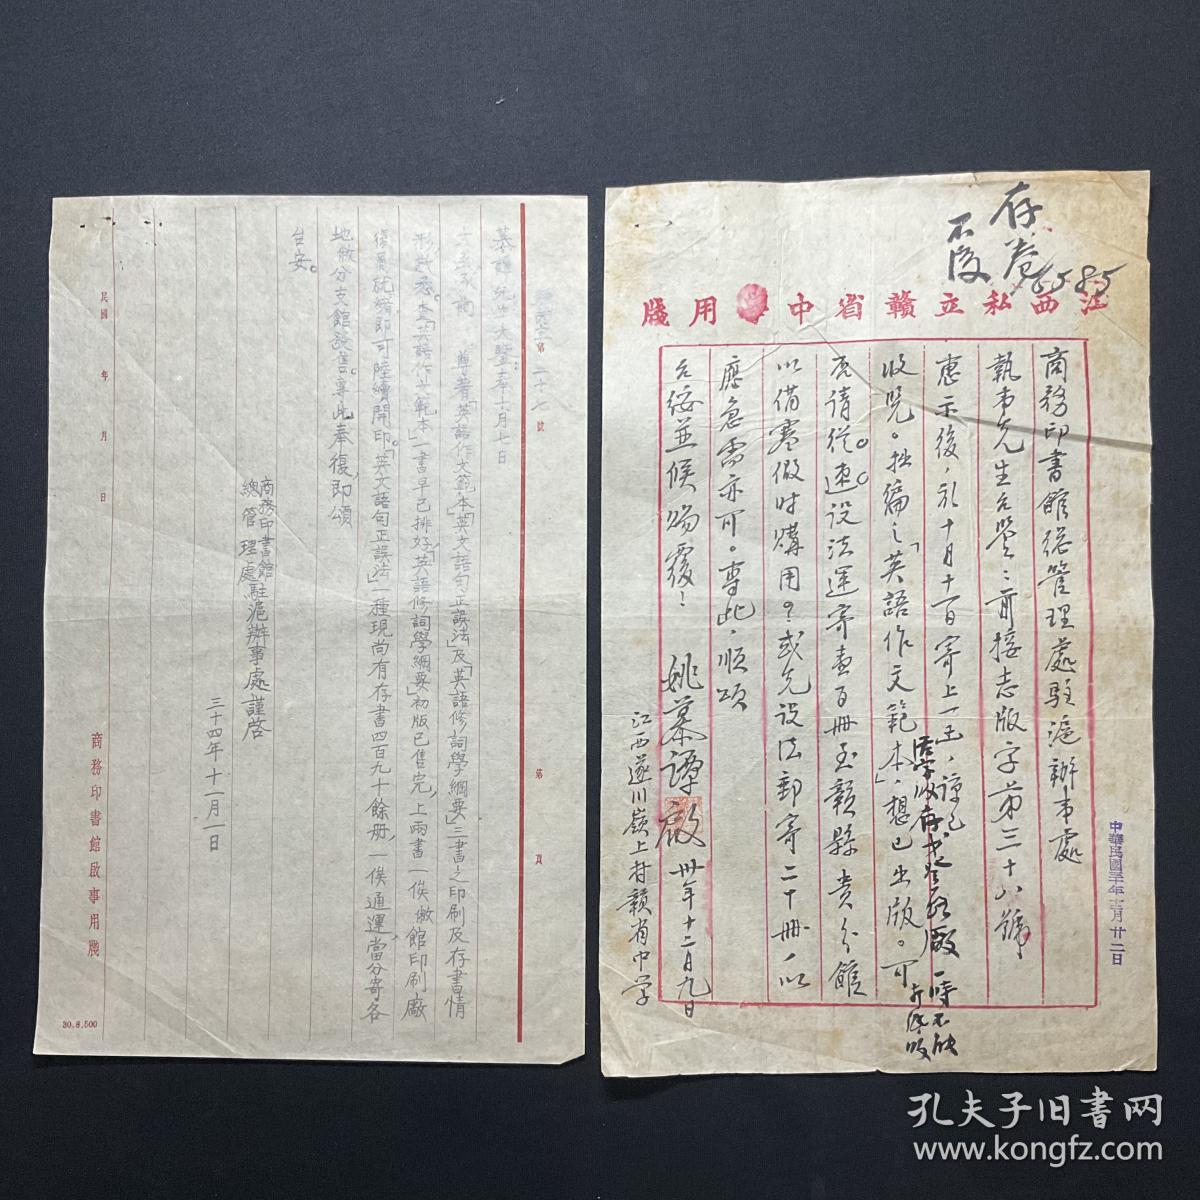 存卷
不復
6585
江西私立贛省中學用牋
商務印書館總管理處駐滬辦事處
執事先生台鑒：前接志版字第三十八號
惠示後，於十月十一日寄上一函，諒已
收覽。拙編之「英語作文範本」，想已出版。可
否請從速設法運寄壹百冊至贛縣貴分館
以備寒假時購用？或先設法郵寄二十冊以
應急需亦可。專此，順頌
台綏並候賜覆！
姚慕譚啟 卅四年十二月九日
江西遂川嶺上村贛省中學
一時不能
中華民國三十四年十二月廿二日
第二十七號
慕譚先生大鑒奉十月七日
尊著「英語作文範本」「英文語句正誤法」及「英語修詞學綱要」三書之印刷及存書情
形敬悉。查「英語作文範本」一書早已排好「英語修詞學綱要」初版已售完，上兩書一俟敝館印刷廠
復員就緒即可陸續開印。「英文語句正誤法」一種現尚有存書四百九十餘冊，一俟通運，當分寄各
地敝分支館發售。專此奉復，即頌
台安。
商務印書館總管理處駐滬辦事處謹啓
三十四年十一月一日
第 頁
民國 年 月 日
商務印書館啟事用牋
30.8.500
孔夫子旧书网
www.kongfz.com